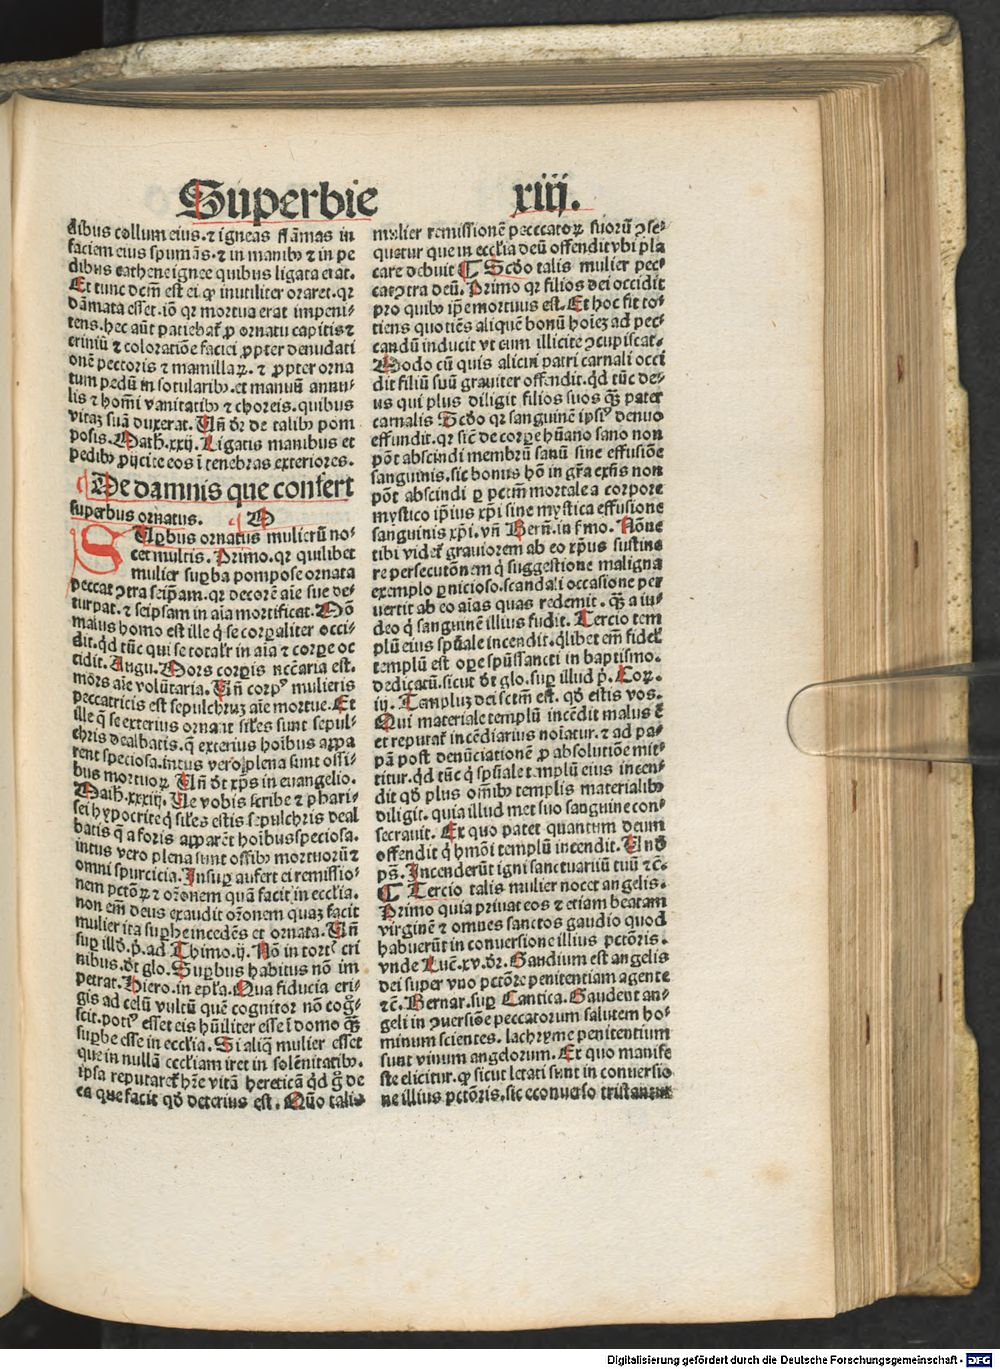 Superbie xiij.
dibus collum eius. ⁊ igneas flãmas in
faciem eius spumãs. ⁊ in manibꝰ ⁊ in pe
dibus cathene ignee quibus ligata erat.
Et tunc dc̃m est ei ꝙ inutiliter oraret. qꝛ
dãmata esset. iõ qꝛ mortua erat impeni-
tens. hec aũt patiebat᷑ ꝓ ornatu capitis ⁊
criniũ ⁊ coloratiõe faciei ꝓpter denudati
onẽ pectoris ⁊ mamillaꝝ. ⁊ ꝓpter orna
tum pedũ in sotularibꝰ. et manuũ annu-
lis ⁊ hom̃i vanitatibꝰ ⁊ choreis. quibus
vitaz suã duxerat. Vñ dr̃ de talibꝰ pom
posis. Math. xxij. Ligatis manibus et
pedibꝰ ꝓijcite eos ĩ tenebras exteriores.
De damnis que confert
superbus ornatus. D
SUꝑbus ornatus mulierũ no-
cet multis. Primo. qꝛ quilibet
mulier suꝑba pompose ornata
peccat ꝯtra seip̃am. qꝛ decorẽ aĩe sue de-
turpat. ⁊ seipsam in aĩa mortificat. Nõ
maius homo est ille q̃ se corꝑaliter occi-
dit. qd̃ tũc qui se totalr̃ in aĩa ⁊ corꝑe oc
cidit. Augu. Mors corꝑis nc̃earia est.
mors aĩe volũtaria. Vñ corpꝰ mulieris
peccatricis est sepulchruz aĩe mortue. Et
ille q̃ se exterius ornant sil̃es sunt sepul-
chris dealbatis. q̃ exterius hoĩbus appa
rent speciosa. intus vero plena sunt ossi-
bus mortuoꝝ. Vñ dt̃ xp̃s in euangelio.
Math. xxxiij. Ve vobis scribe ⁊ phari-
sei hypocrite q̃ sil̃es estis sepulchris deal
batis q̃ a foris apparẽt hoĩbus speciosa.
intus vero plena sunt ossibꝰ mortuorũ ⁊
omni spurcicia. Insuꝑ aufert ei remissio-
nem pctõꝝ ⁊ or̃onem quã facit in eccl̃ia.
non em̃ deus exaudit or̃onem quaz facit
mulier ita suꝑbe incedẽs et ornata. Vñ
suꝑ illd̃. p̃. ad Thimo. ij. Nõ in tort᷑ cri
nibus. dt̃ glo. Suꝑbus habitus nõ im
petrat. Hiero. in epl̃a. Qua fiducia eri-
gis ad celũ vultũ quẽ cognitor nõ cog̃-
scit. potiꝰ esset eis hũiliter esse ĩ domo qꝫ̃
suꝑbe esse in eccl̃ia. Si aliq̃ mulier esset
que in nullã eccl̃iam iret in solẽnitatibꝰ.
ipsa reputaret᷑ hr̃e vitã hereticã qd̃ g̃ de
ea que facit qd̃ deterius est. Quõ talis
mulier remissionẽ peccatoꝝ suorũ ꝯse-
quetur que in eccl̃ia deũ offendit vbi pla
care debuit ¶ Scd̃o talis mulier pec-
cat ꝯtra deũ. Primo qꝛ filios dei occidit
pro quibꝰ ip̃e mortuus est. Et hoc fit to-
tiens quotiẽs aliquẽ bonũ hoĩez ad pec-
candũ inducit vt eum illicite ꝯcupiscat.
Modo cũ quis alicui patri carnali occi
dit filiũ suũ grauiter offendit. qd̃ tũc de-
us qui plus diligit filios suos qꝫ̃ pater
carnalis Scd̃o qꝛ sanguinẽ ipsiꝰ denuo
effundit. qꝛ sic̃ de corꝑe hũano sano non
põt abscindi membrũ sanũ sine effusiõe
sanguinis. sic bonus hõ in gr̃a exñs non
põt abscindi ꝑ pctm̃ mortale a corpore
mystico ip̃ius xp̃i sine mystica effusione
sanguinis xp̃i. vñ Bern̄. in s̃mo. Nõne
tibi videt᷑ grauiorem ab eo xp̃us sustine
re persecutõnem q̃ suggestione maligna
exemplo ꝑnicioso. scandali occasione per
uertit ab eo aĩas quas redemit. qꝫ̃ a iu-
deo q̃ sanguinẽ illius fudit. Tercio tem
plũ eius spũale incendit. qlibet em̃ fidel᷑
templũ est oꝑe spũssancti in baptismo.
dedicatũ. sicut dt̃ glo. suꝑ illud p̃. Cor.
iij. Templuz dei sctm̃ est. qd̃ estis vos.
Qui materiale templũ incẽdit malus ẽ
et reputat᷑ incẽdiarius noĩatur. ⁊ ad pa-
pã post denũciationẽ ꝓ absolutiõe mit-
titur. qd̃ tũc q̃ spũale templũ eius incen-
dit qd̃ plus om̃ibꝰ templis materialibꝰ
diligit. quia illud met suo sanguine con-
secrauit. Ex quo patet quantum deum
offendit q̃ hm̃õi templũ incendit. Vnd̃
ps̃. Incenderũt igni sanctuariũ tuũ ⁊c̃.
¶ Tercio talis mulier nocet angelis.
Primo quia priuat eos ⁊ etiam beatam
virginẽ ⁊ omnes sanctos gaudio quod
habuerũt in conuersione illius pctõris.
vnde Luc̃. xv. dr̃. Gaudium est angelis
dei super vno pctõre penitentiam agente
⁊c̃. Bernar. suꝑ Cantica. Gaudent an-
geli in ꝯuersiõe peccatorum salutem ho-
minum scientes. lachryme penitentium
sunt vinum angelorum. Ex quo manife
ste elicitur. ꝙ sicut letati sunt in conuersio
ne illius pctõris. sic econuerso tristantur
Digitalisierung gefördert durch die Deutsche Forschungsgemeinschaft - DFG